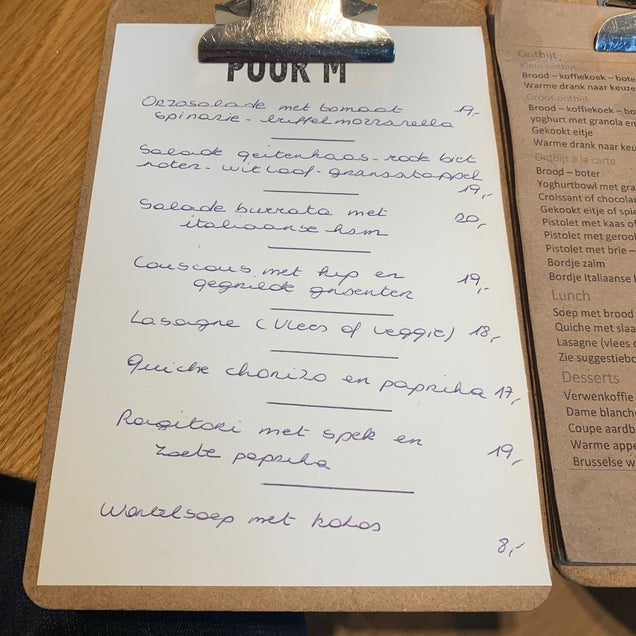 POUR M
Orzosalade met tomaat 19,-
spinazie - truffelmozzarella
Salade geitenkaas - rode biet
noten - witloof - granaatappel
19,-
Salade burrata met 20,-
italiaanse ham
Couscous met kip en 19,-
gegrilde groenten
Lasagne (vlees of veggie) 18,-
Quiche chorizo en paprika 17,-
Rigatoni met spek en 19,-
zoete paprika
Wortelsoep met kokos
8,-
Ontbijt
Klein ontbijt
Brood – koffiekoek – bote
Warme drank naar keuze
Groot ontbijt
Brood – koffiekoek – bo
yoghurt met granola en
Gekookt eitje
Warme drank naar keu
Ontbijt à la carte
Brood – boter
Yoghurtbowl met gra
Croissant of chocola
Gekookt eitje of spie
Pistolet met kaas o
Pistolet met geroo
Pistolet met brie –
Bordje zalm
Bordje Italiaanse
Lunch
Soep met brood
Quiche met slaa
Lasagne (vlees o
Zie suggestiebo
Desserts
Verwenkoffie
Dame blanch
Coupe aardb
Warme appe
Brusselse w